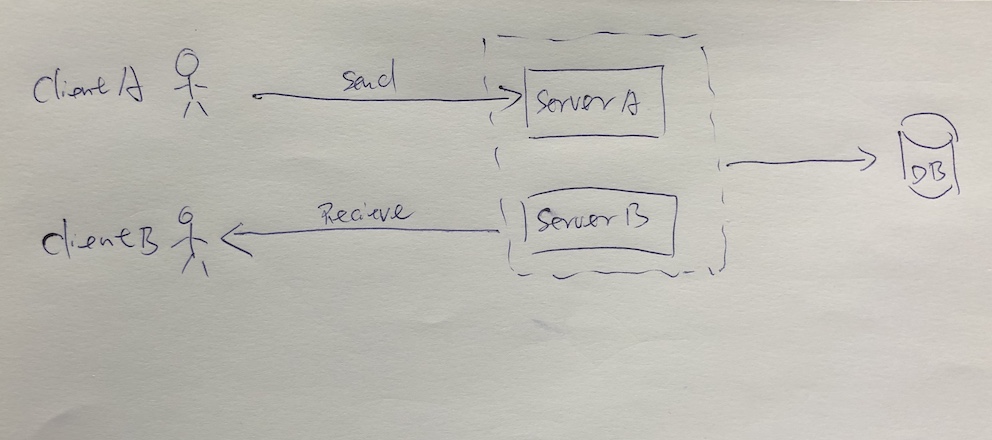 Client A
Send
Server A
DB
Client B
Recieve
Server B